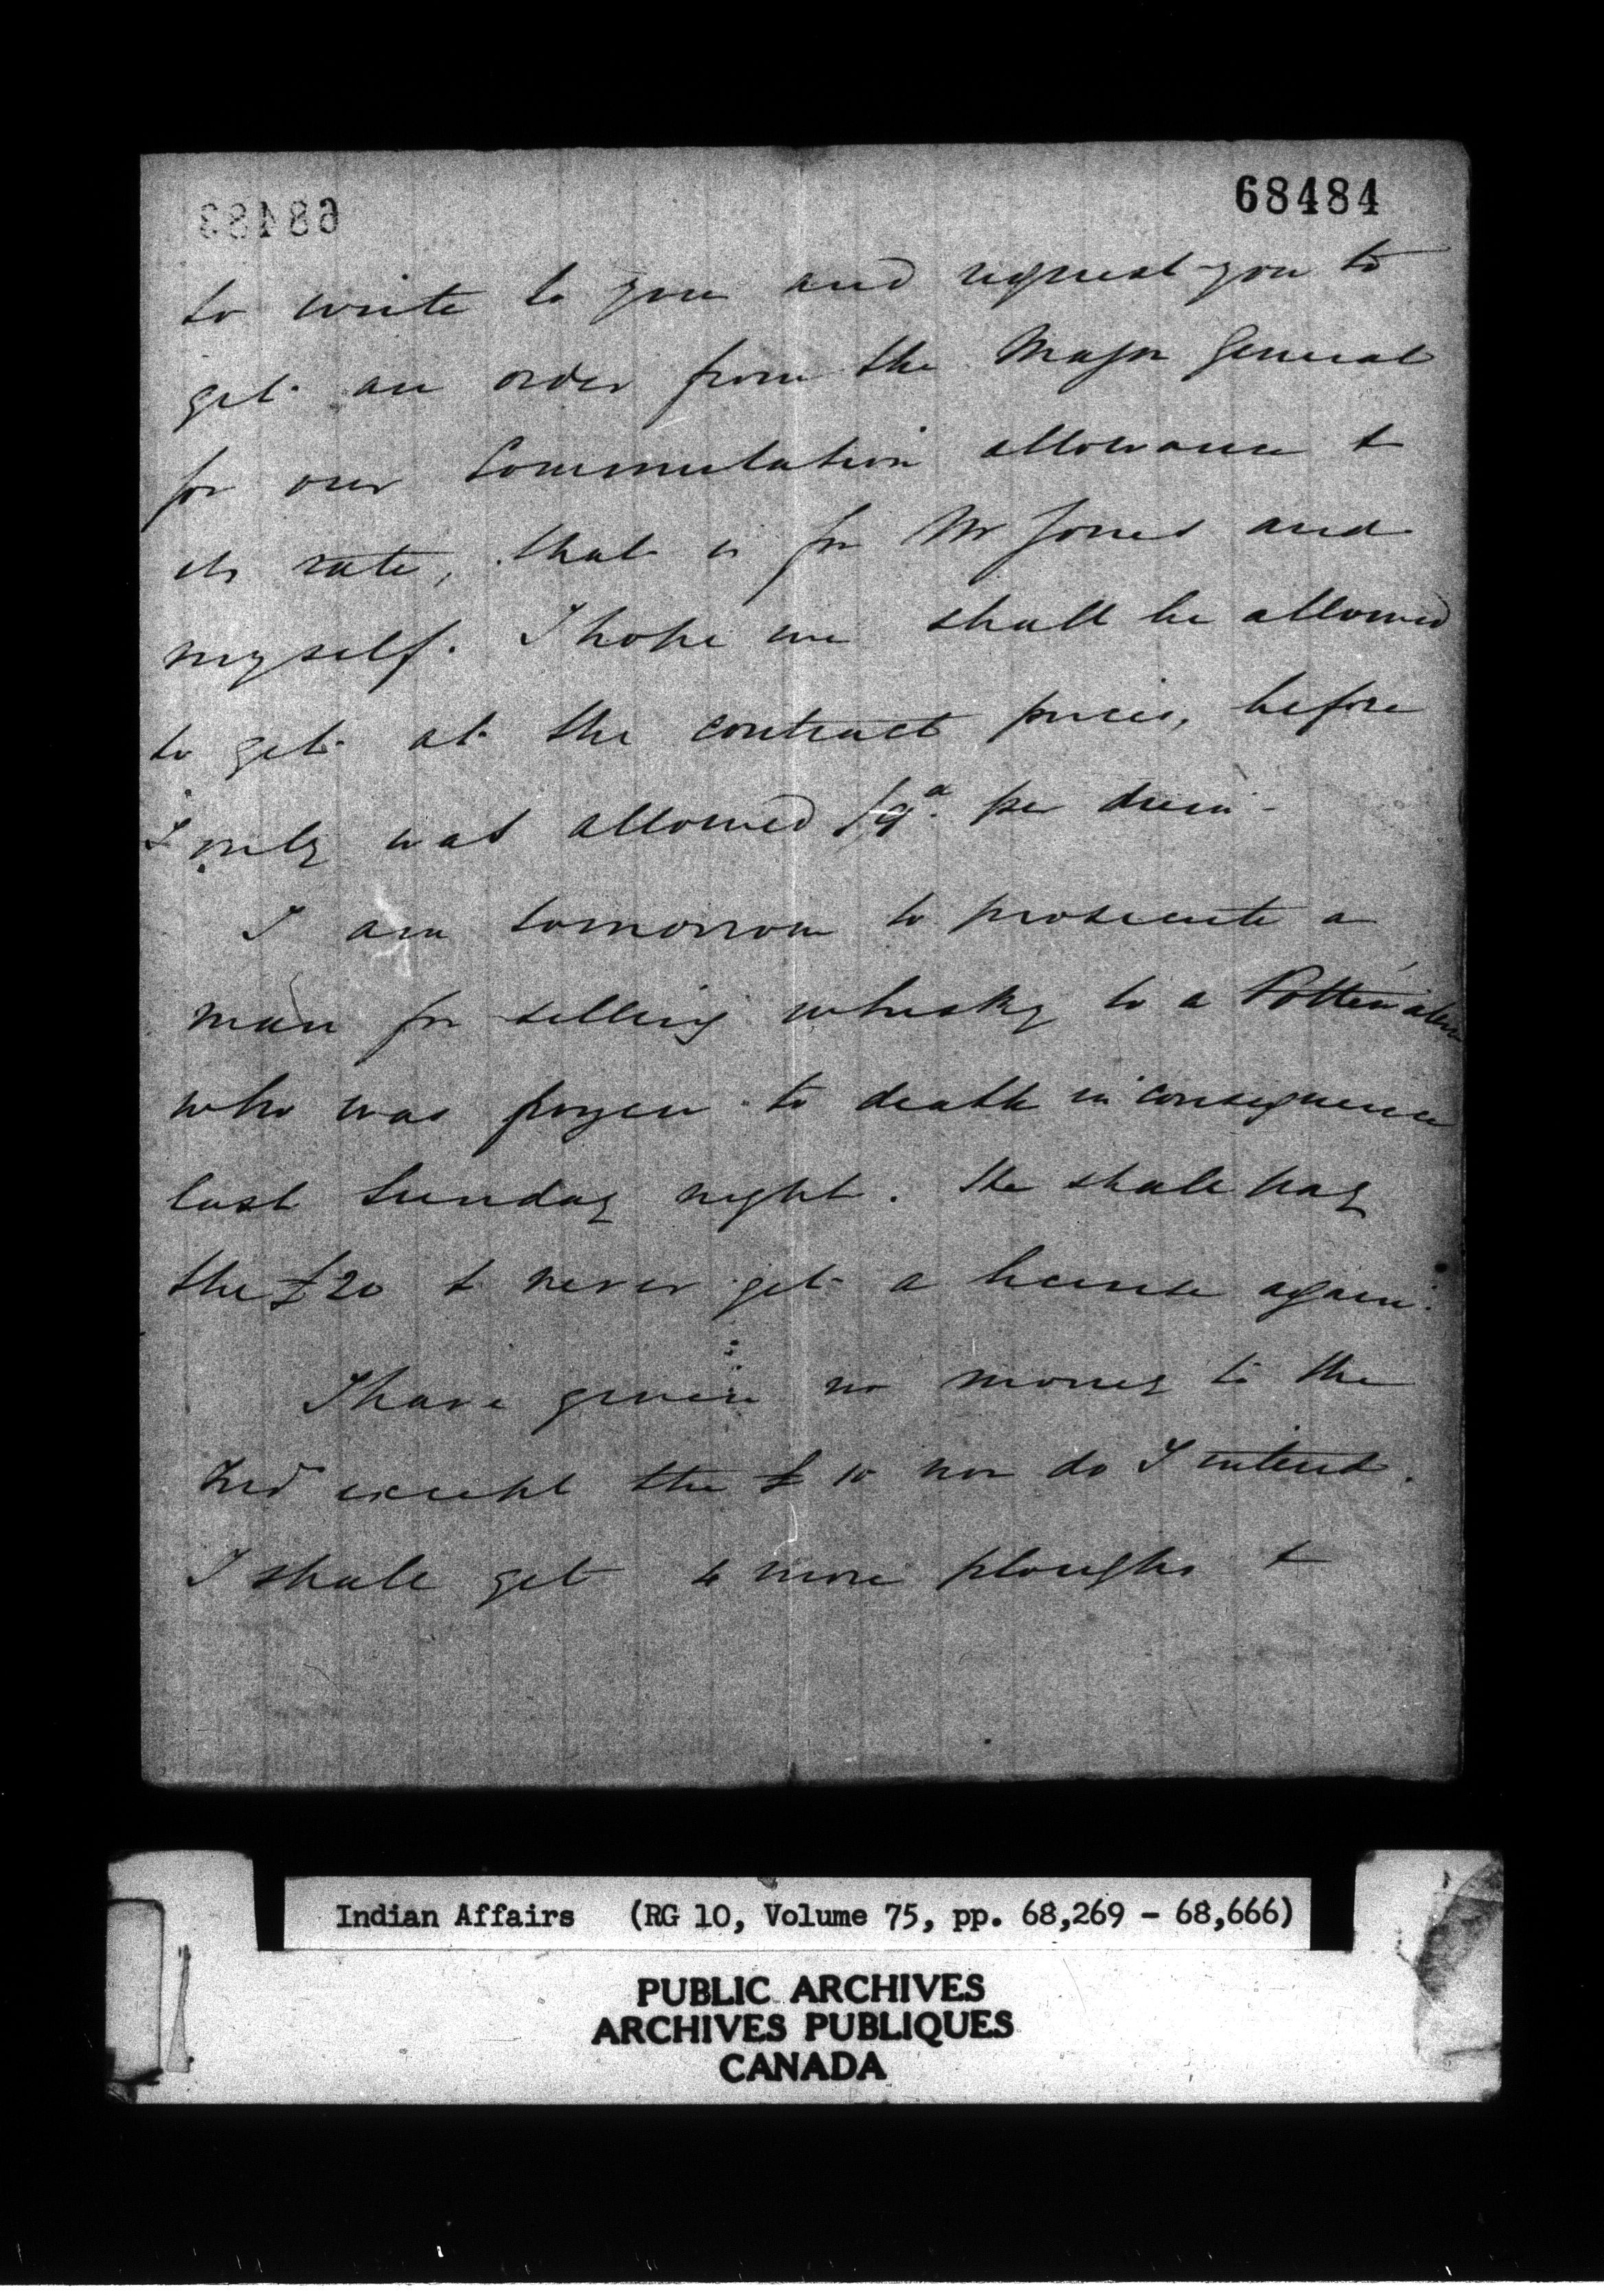 68484
68483
to write to you and request you to
get an order from the Major General
for our Commutation allowance &
its rate, that is for Mr Jones and
myself. I hope we shall be allowed
to get at the contract prices, before
I only was allowed /9d. per diem -
I am tomorrow to prosecute a
man for selling whisky to a
who was frozen to death in consequence
last Sunday night. He shall pay
the £20 & never get a license again.
I have given no money to the
Inds except the £10 nor do I intend.
I shall get 4 more ploughs &
Indian Affairs (RG 10, Volume 75, pp. 68,269 - 68,666)
PUBLIC ARCHIVES
ARCHIVES PUBLIQUES
CANADA